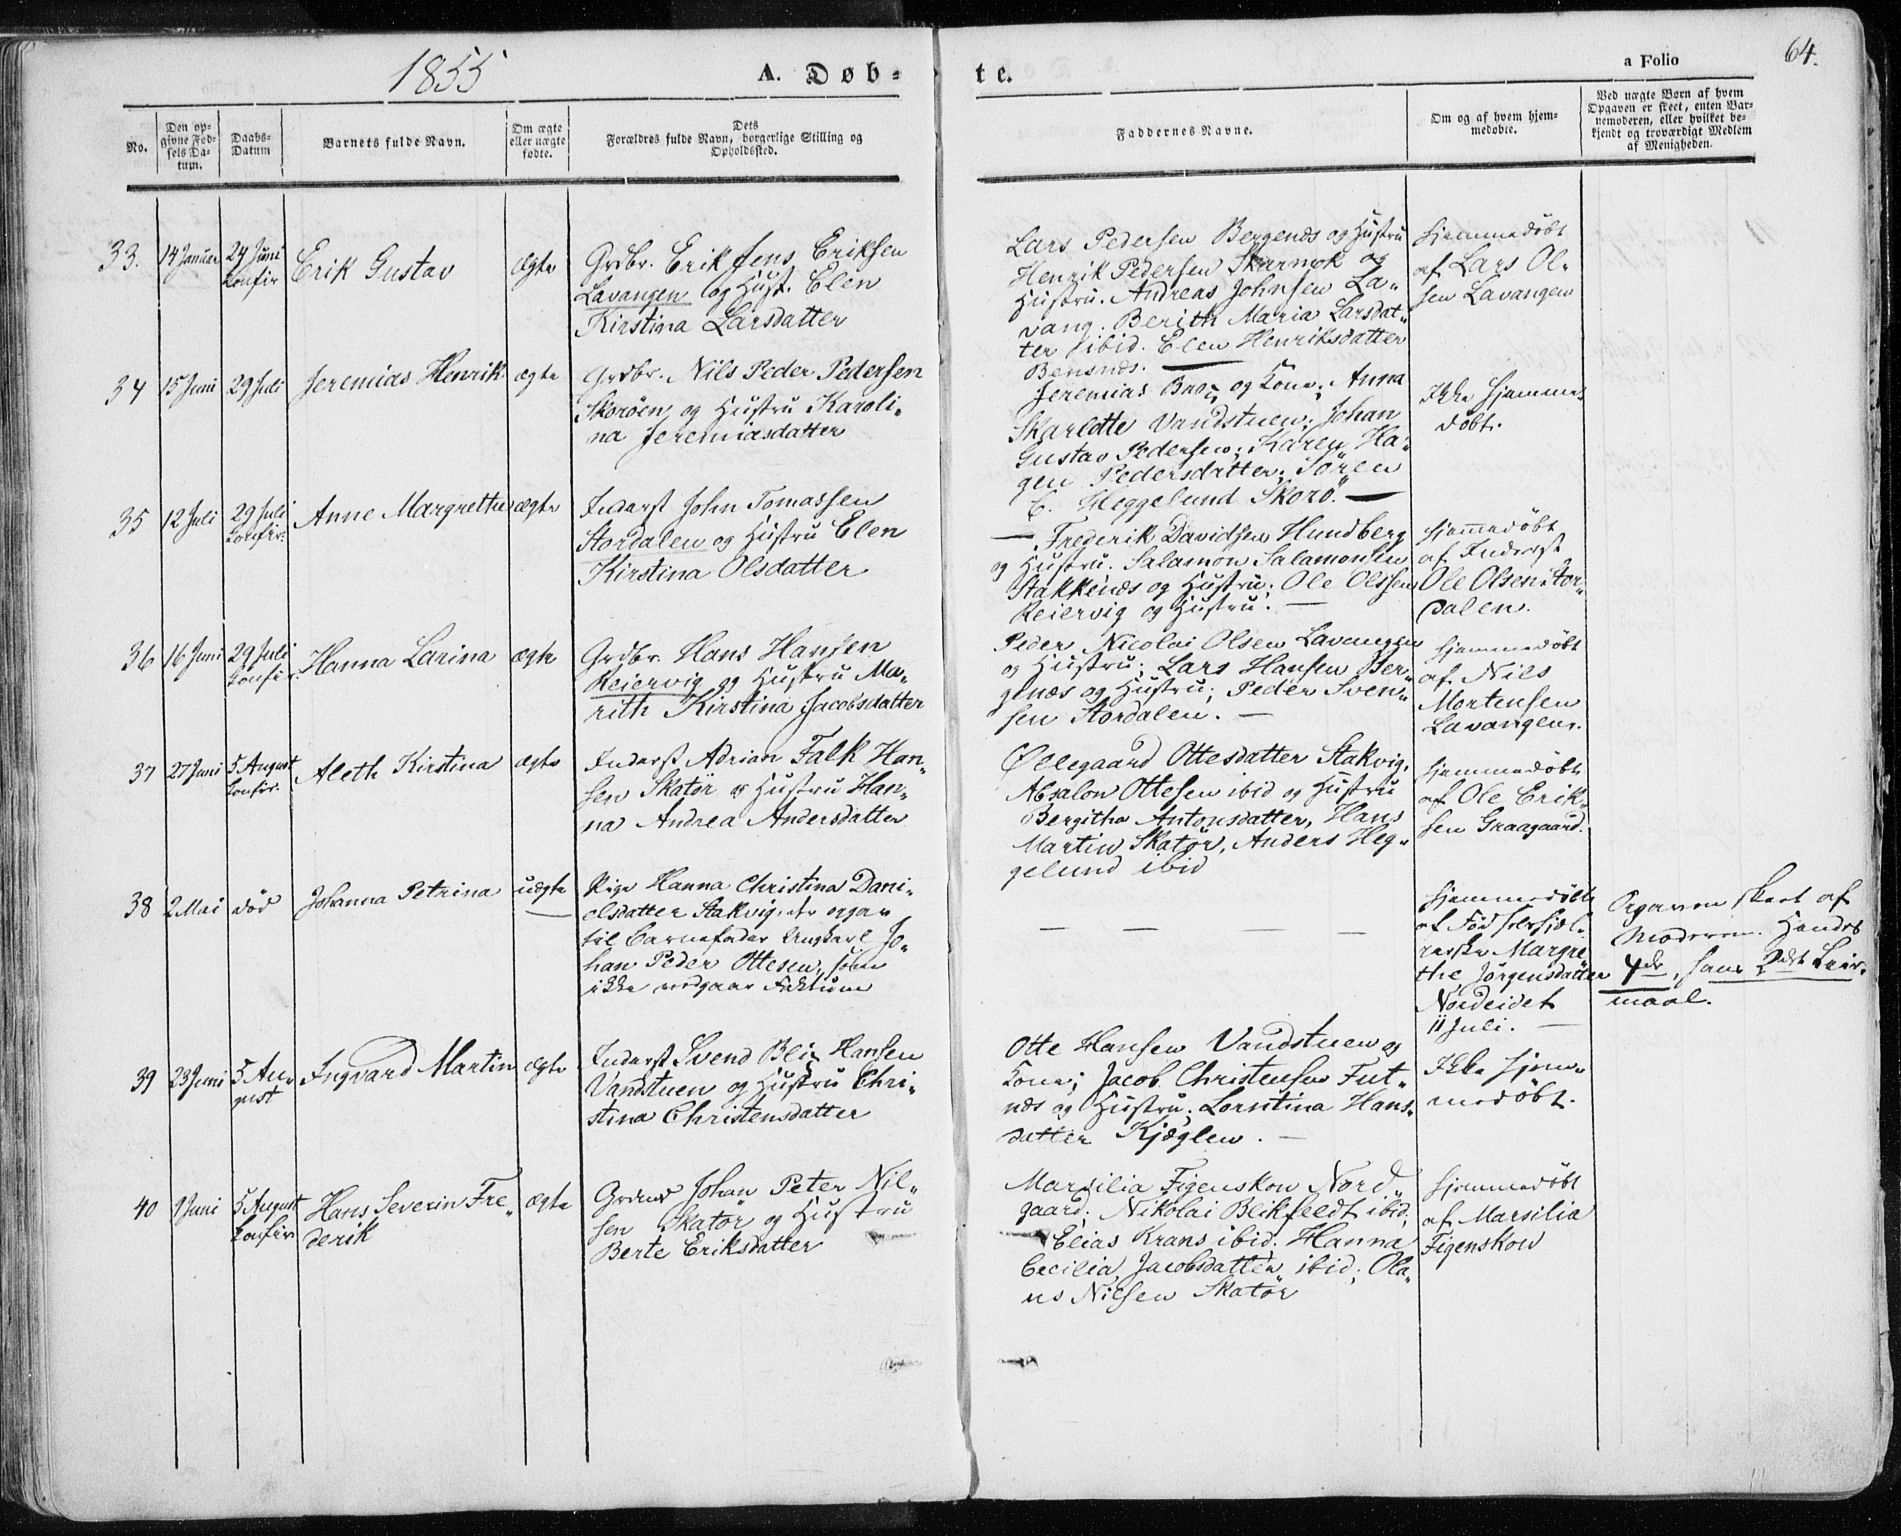 1855
A. Døb-
te.
a Folio
64.
No.
Den op-
givne Fød-
sels Da-
tum.
Daabs-
Datum
Barnets fulde Navn.
Om ægte
eller uægte
fødte.
Dets
Forældres fulde Navn, borgerlige Stilling og
Opholdssted.
Faddernes Navne.
Om og af hvem hjem-
medøbte.
Ved uægte Børn af hvem
Opgaven er skeet, enten Bar-
nemoderen, eller hvilket be-
kjendt og troværdigt Medlem
af Menigheden.
33.
14 Januar
24 Juni
Confir
Erik Gustav
ægte
Grdbr. Erik Jens Eriksen
Lavangen og Hust. Elen
Kirstina Larsdatter
Lars Pedersen Bergenæs og Hustru
Henrik Pedersen Skarmok og
Hustru. Andreas Johnsen La-
vang. Berith Maria Larsdat-
ter ibid. Elen Henriksdatter
Bensnæs. —
Hjemmedøbt
af Lars Ol-
sen Lavangen
34
15 Juni
29 Juli
Jeremias Henrik
ægte
Grdbr. Nils Peder Pedersen
Skorøen og Hustru Karoli-
na Jeremiasdatter
Jeremias og Kone; Anna
Skarlotte Vandstuen; Johan
Gustav Pedersen; Karen Ha-
gen Pedersdatter; Sören
C. Heggelund Skorø. —
Ikke hjemme-
døbt.
35
12 Juli
29 Juli
Confir.
Anne Margrethe
ægte
Inderst John Tomassen
Stordalen og Hustru Elen
Kirstina Olsdatter
— Frederik Davidsen Hundberg
og Hustru. Salamon Salamonsen
Stakkenæs og Hustru; Ole Olssen
Reiervig og Hustru. —
Hjemmedøbt
af Inderst
Ole Olsen Stor-
dalen.
36
16 Juni
29 Juli
Confir.
Hanna Larina
ægte
Grdbr. Hans Hansen
Reiervig og Hustru Ma-
rith Kirstina Jacobsdatter
Peder Nicolai Olsen Lavangen
og Hustru; Lars Hansen Ber-
genæs og Hustru; Peder Sven-
sen Stordalen. —
Hjemmedøbt
af Nils
Mortensen
Lavangen.
37
27 Juni
5 August
Confir.
Aleth Kirstina
ægte
Inderst Adrian Falk Han-
sen Skatør og Hustru Han-
na Andrea Andersdatter
Øllegaard Ottesdatter Stakvig.
Absalon Ottesen ibid og Hustru
Bergitha Antonsdatter, Hans
Martin Skatør, Anders Heg-
gelund ibid
Hjemmedøbt
af Ole Erik-
sen Graagaard.
38
2 Mai
død
Johanna Petrina
uægte
—
Pige Hanna Christina Dani-
elsdatter Stakvig,
til Barnefader Ungkarl Jo-
han Peder Ottesen, som
ikke vedgaar Faktum
— — — —
Hjemmedøbt
af Fødselshjæl-
perske Margre-
the Jørgensdatter
Nordeidet
11 Juli. —
Opgaven skeet af
Moderen. Hendes
4de, hans 2det Leier-
maal.
39
23 Juni
5 Au-
gust
Ingvard Martin
ægte
Inderst Svend Blix Hansen
Vandstuen og Hustru Chri-
stina Christensdatter
Otte Hansen Vandstuen og
Kone; Jacob Christensen Fut-
næs og Hustru; Lorntina Hans-
datter Kjæglen. —
Ikke hjem-
medøbt.
40
1 Juni
5 August
Confir
Hans Severin Fre-
derik
ægte
Grdmd Johan Peter Nil-
sen Skatør og Hustru
Berte Eriksdatter
Marsilia Figenskou Nord-
gaard; Nikolai Blikfeldt ibid;
Elias Krans ibid. Hanna
Cecilia Jacobsdatter ibid; Ola-
us Nilsen Skatør
Hjemmedøbt
af Marsilia
Figenskou